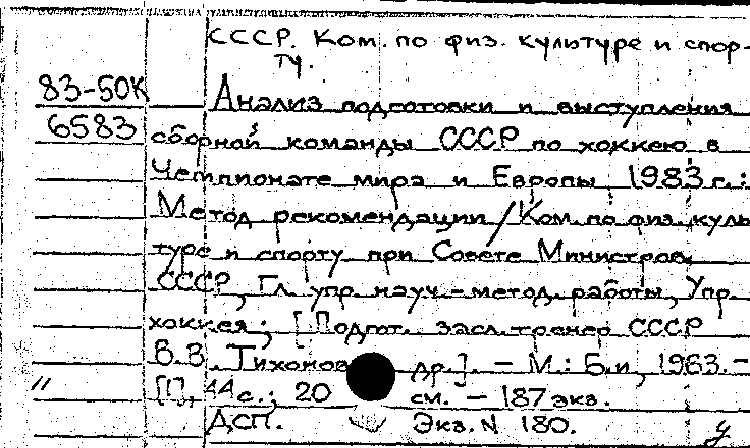 СССР. Ком. по физ. культуре и спор-
ту.
83-50К
Анализ подготовки и выступления
6583
сборной команды СССР по хоккею в
Чемпионате мира и Европы 1983 г.:
Метод. рекомендации / Ком. по физ. куль
туре и спорту при Совете Министров
СССР, Гл. упр. науч.-метод. работы, Упр.
хоккея; [Подгот. засл. тренер СССР
В.В. Тихонов др.]. - М.: Б.и, 1983. -
44 с.; 20 см. - 187 экз.
ДСП. Экз. N 180.